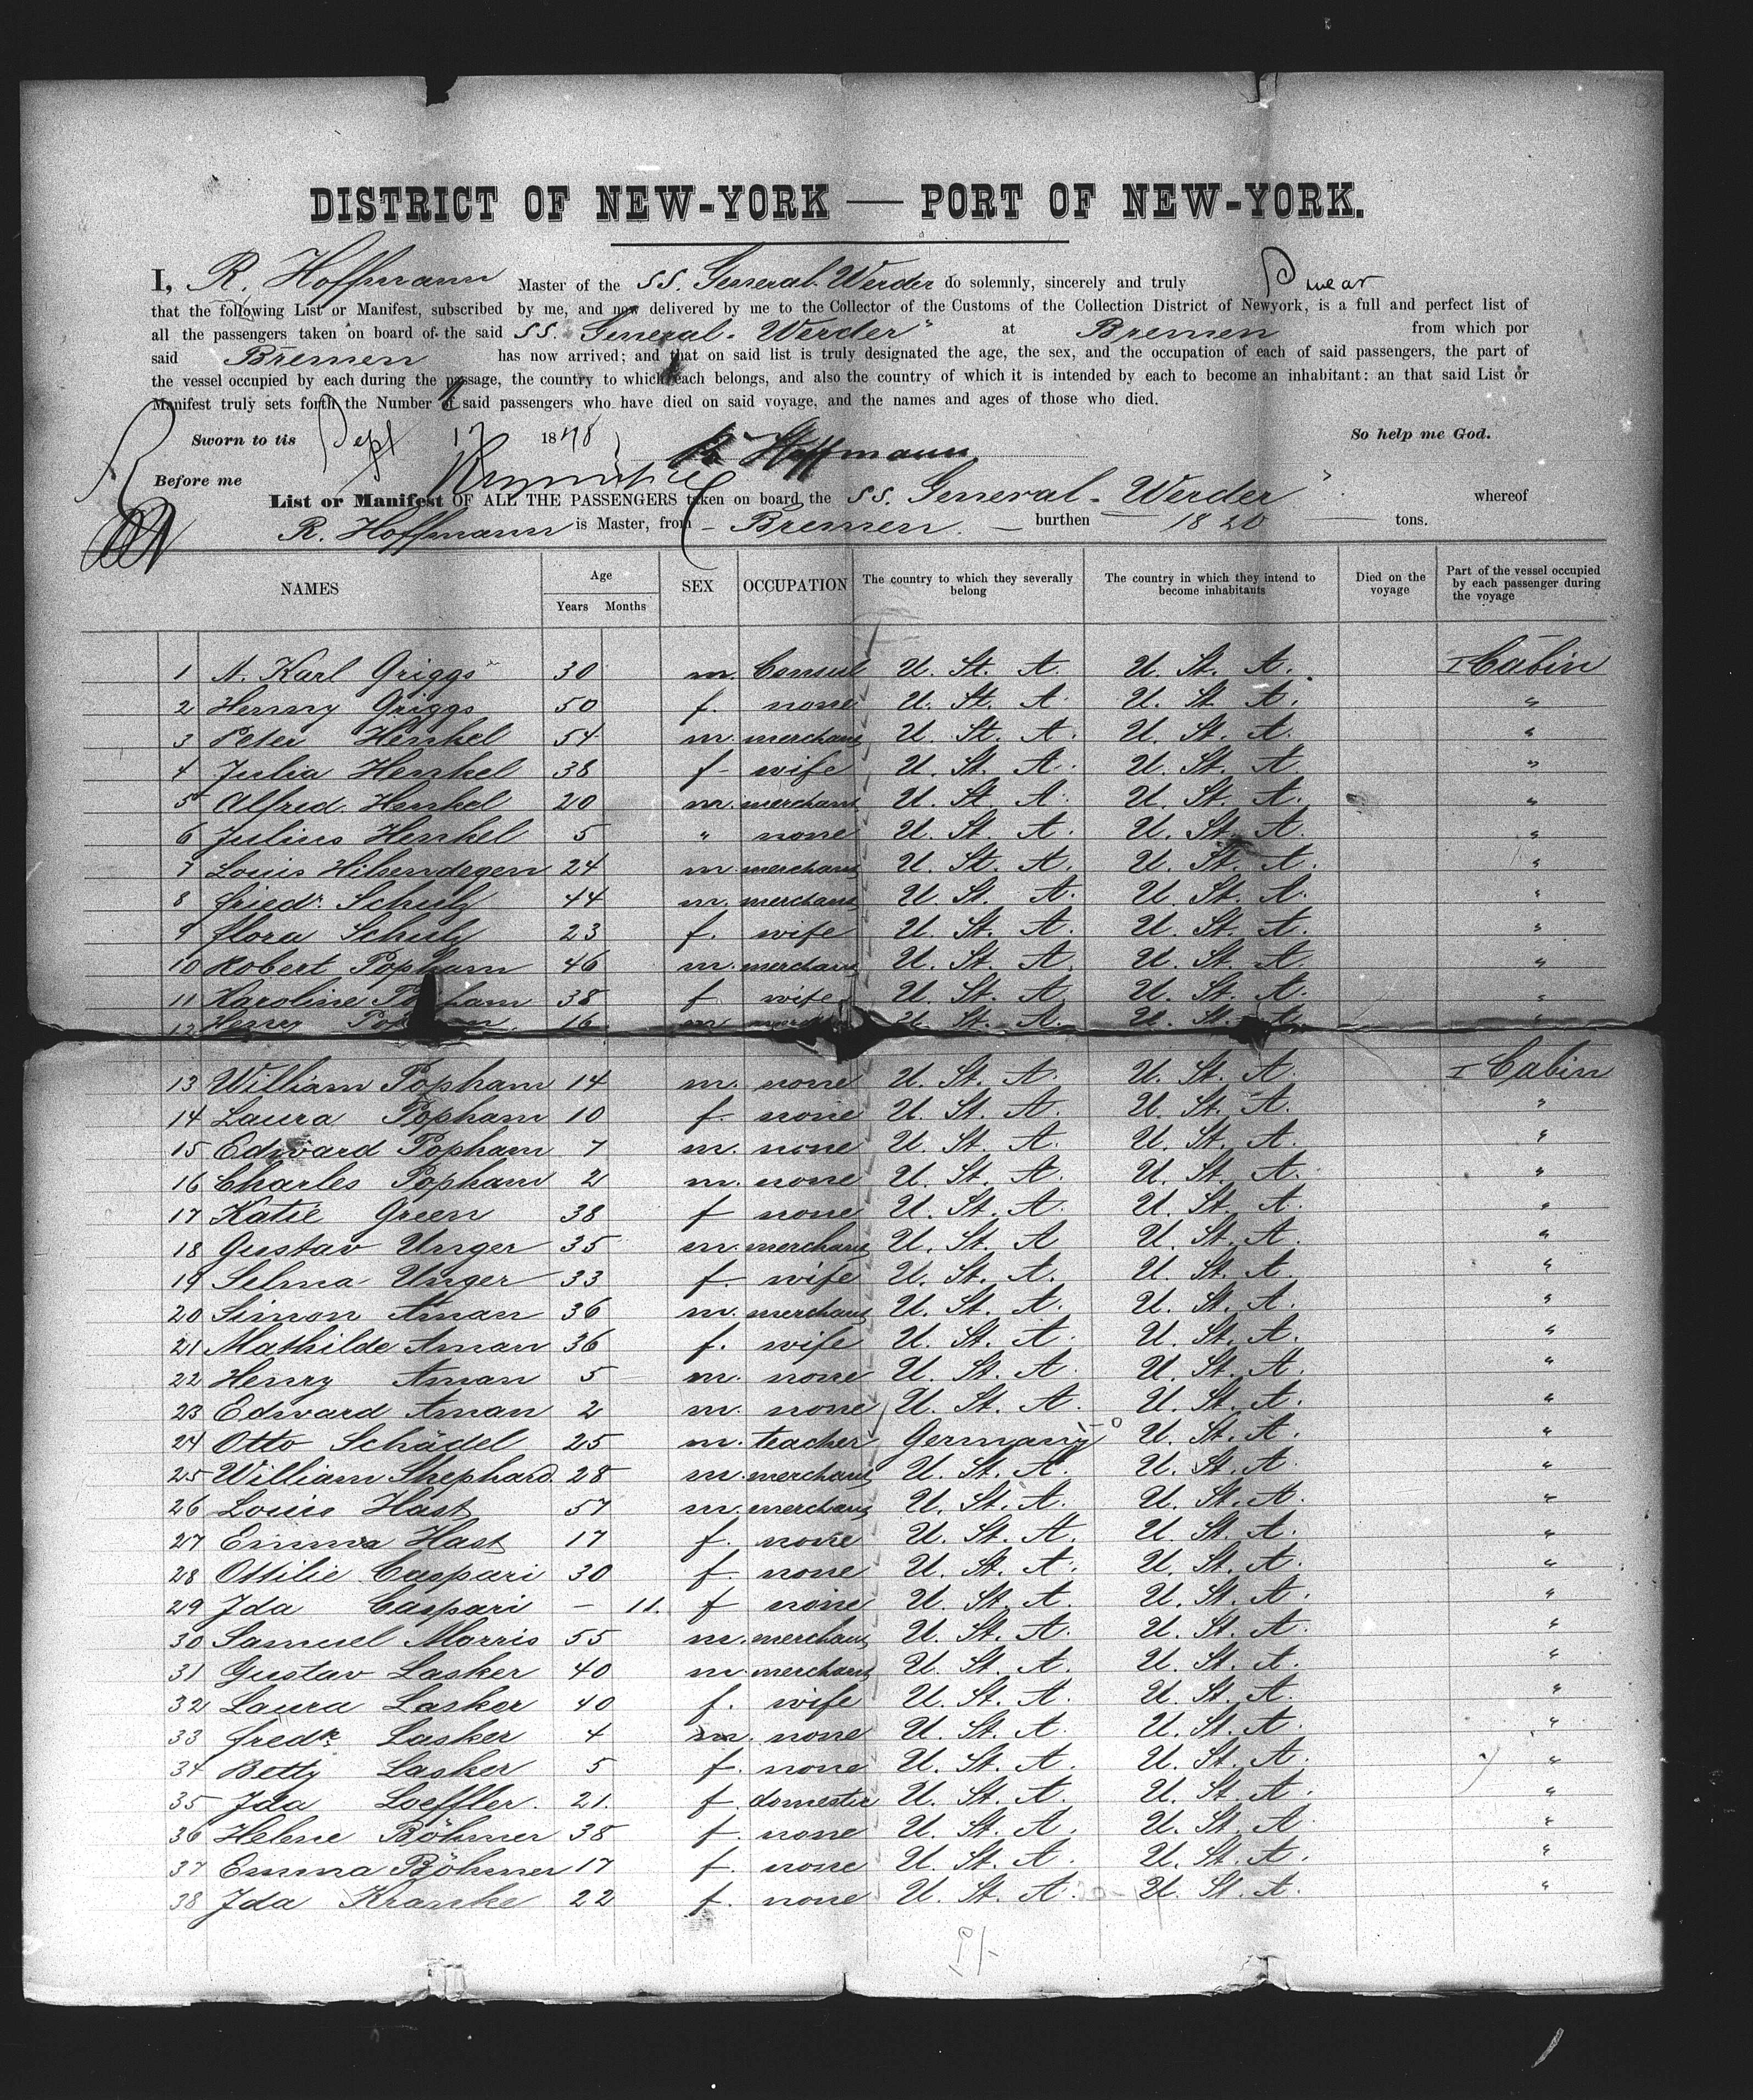 DISTRICT OF NEW-YORK — PORT OF NEW-YORK.
I, R. Hoffmann Master of the SS. General Werder do solemnly, sincerely and truly Swear
that the following List or Manifest, subscribed by me, and now delivered by me to the Collector of the Customs of the Collection District of Newyork, is a full and perfect list of
all the passengers taken on board of the said SS. General. Werder" at Bremen from which por
said Bremen has now arrived; and that on said list is truly designated the age, the sex, and the occupation of each of said passengers, the part of
the vessel occupied by each during the passage, the country to which each belongs, and also the country of which it is intended by each to become an inhabitant: an that said List or
Manifest truly sets forth the Number of said passengers who have died on said voyage, and the names and ages of those who died.
Sworn to tis Sept 17 1878 So help me God.
R. Hoffmann
Before me
List or Manifest OF ALL THE PASSENGERS taken on board the SS. General. Werder" whereof
R. Hoffmann is Master, from Bremen. burthen 1820 tons.
NAMES Age Years Months SEX OCCUPATION The country to which they severally belong The country in which they intend to become inhabitants Died on the voyage Part of the vessel occupied by each passenger during the voyage
1 A. Karl Griggs 30 m. Consul U. St. A. U. St. A. I Cabin
2 Henny Griggs 50 f. none U. St. A. U. St. A. "
3 Peter Henkel 54 m. merchant U. St. A. U. St. A. "
4 Julia Henkel 38 f wife U. St. A. U. St. A "
5 Alfred Henkel 20 m. merchant U. St. A. U. St. A. "
6 Julius Henkel 5 " none U. St. A. U. St. A. "
7 Louis Hilsendegen 24 m. merchant U. St. A. U. St. A. "
8 Friedr. Schulz 44 m. merchant U. St. A. U. St. A. "
9 Flora Schulz 23 f. wife U. St. A. U. St. A. "
10 Robert Popham 46 m. merchant U. St. A. U. St. A. "
11 Karoline Popham 38 f wife U. St. A. U. St. A. "
12 Henry Popham 16 m U. St. A. U. St. A. "
13 William Popham 14 m. none U. St. A. U. St. A. I Cabin
14 Laura Popham 10 f. none U. St. A. U. St. A. "
15 Edward Popham 7 m. none U. St. A. U. St. A. "
16 Charles Popham 2 m. none U. St. A. U. St. A. "
17 Katie Green 38 f none U. St. A. U. St. A. "
18 Gustav Unger 35 m. merchant U. St. A U. St. A. "
19 Selma Unger 33 f. wife U. St. A. U. St. A. "
20 Simon Aman 36 m. merchant U. St. A. U. St. A. "
21 Mathilde Aman 36 f. wife U. St. A. U. St. A. "
22 Henry Aman 5 m. none U. St. A. U. St. A. "
23 Edward Aman 2 m. none U. St. A. U. St. A. "
24 Otto Schädel 25 m. teacher Germany U. St. A. "
25 William Shephard 28 m. merchant U. St. A. U. St. A. "
26 Louis Hast 57 m. merchant U. St. A. U. St. A. "
27 Emma Hast 17 f. none U. St. A. U. St. A. "
28 Ottilie Caspari 30 f. none U. St. A. U. St. A. "
29 Ida Caspari – 11. f none U. St. A. U. St. A. "
30 Samuel Morris 55 m. merchant U. St. A. U. St. A. "
31 Gustav Lasker 40 m. merchant U. St. A. U. St. A. "
32 Laura Lasker 40 f. wife U. St. A. U. St. A. "
33 Fredk. Lasker 4 m. none U. St. A. U. St. A. "
34 Betty Lasker 5 f. none U. St. A. U. St. A. "
35 Ida Loeffler. 21. f. domestic U. St. A. U. St. A. "
36 Helene Böhmer 38 f. none U. St. A. U. St. A. "
37 Emma Böhmer 17 f. none U. St. A. U. St. A. "
38 Ida Kranke 22 f. none U. St. A. U. St. A. "